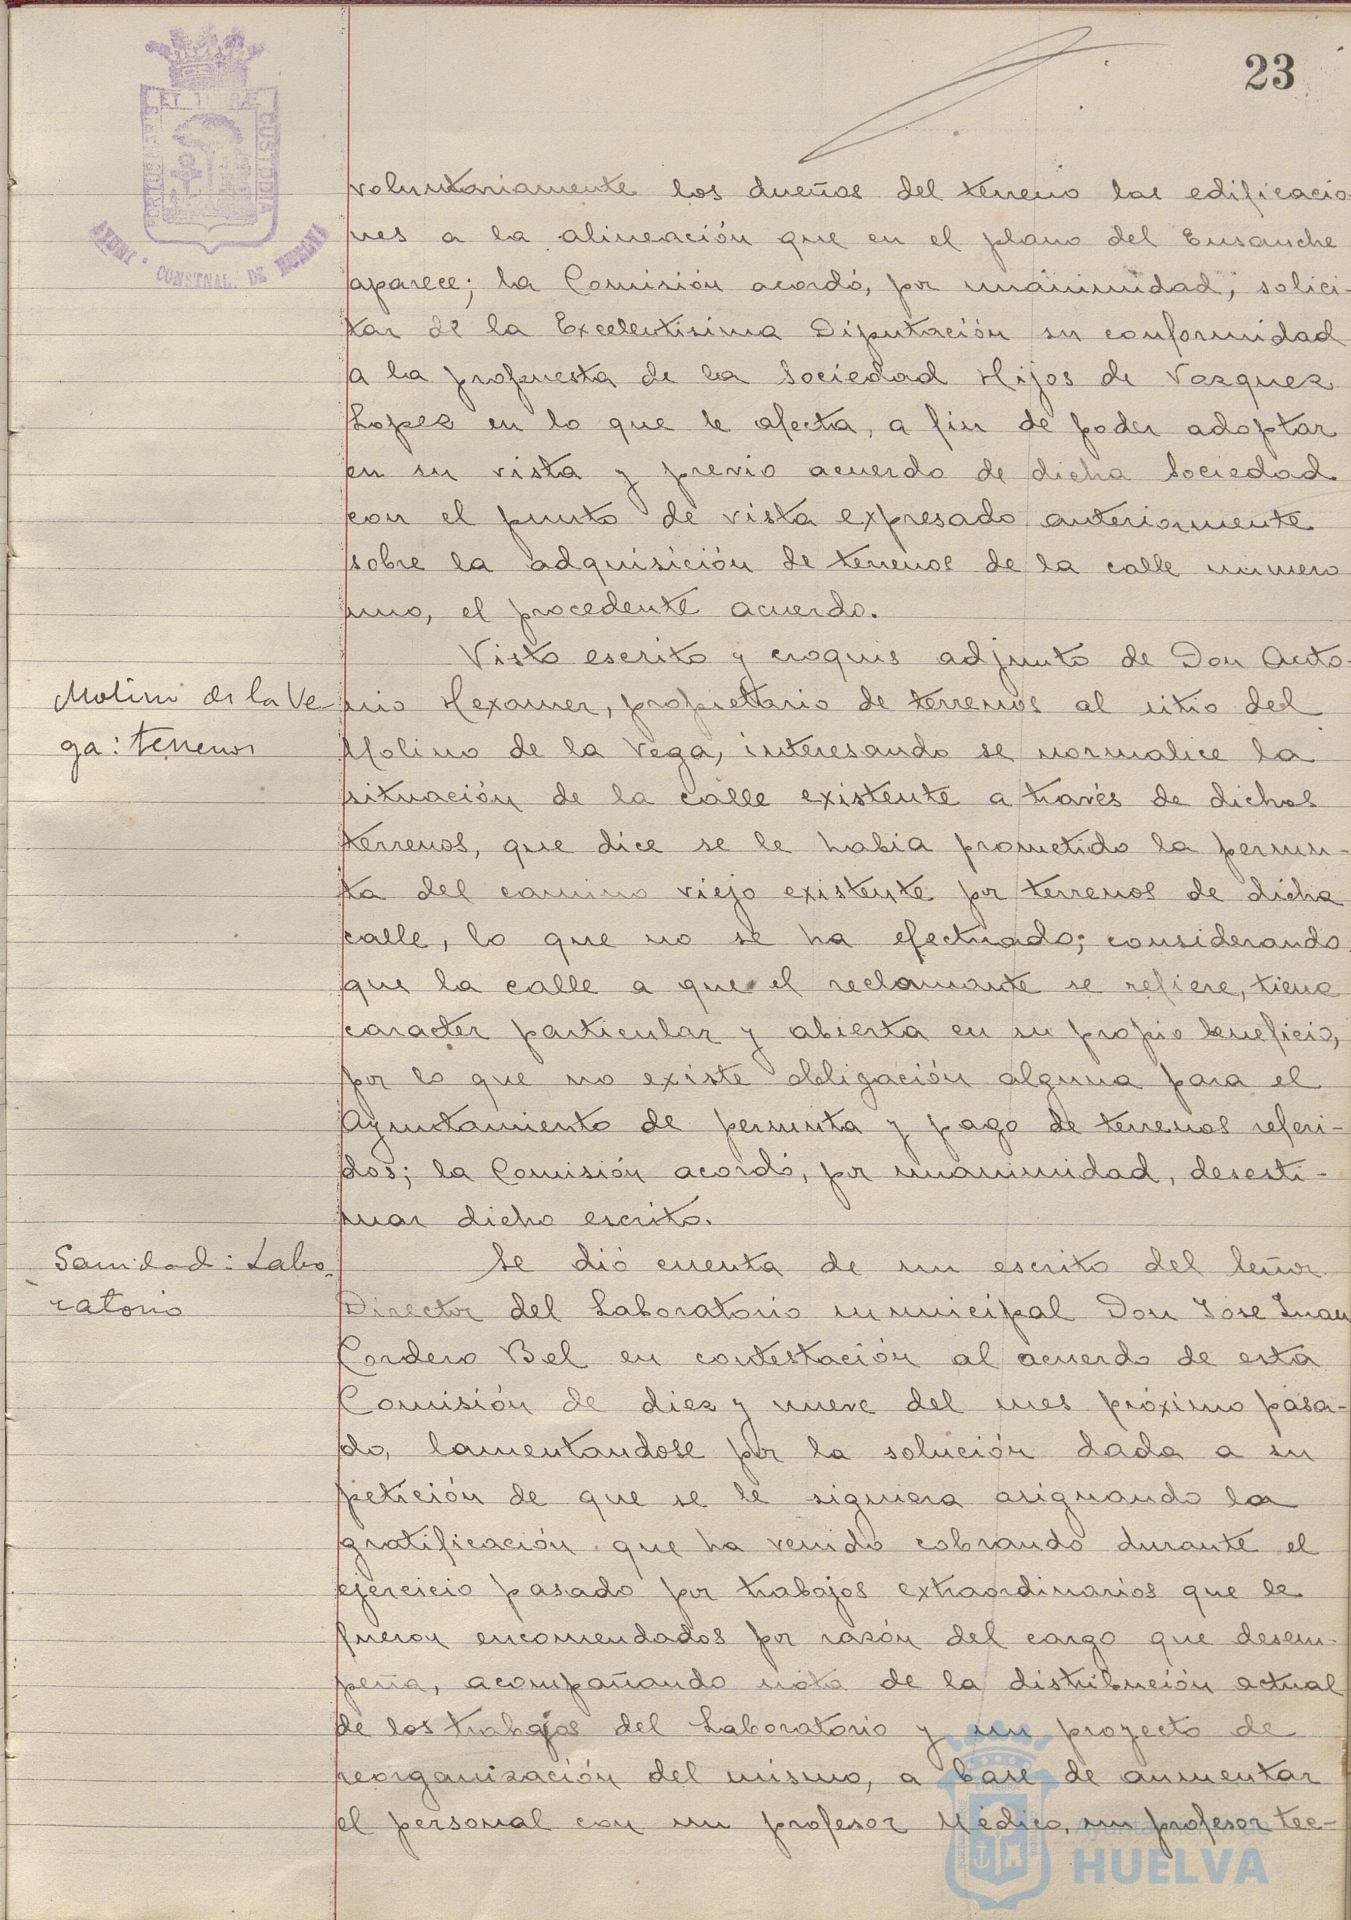 23
PORTUS MARIS ET TERRÆ CUSTODIA
AYUNT. CONSTNAL. DE HUELVA
voluntariamente los dueños del terreno las edificacio-
nes a la alineación que en el plano del Ensanche
aparece; la Comisión acordó, por unánimidad, solici-
tar de la Excelentisima Diputación su conformidad
a la propuesta de la Sociedad Hijos de Vazquez
Lopez en lo que le afecta, a fin de poder adoptar
en su vista y previo acuerdo de dicha Sociedad
con el punto de vista expresado anteriormente
sobre la adquisición de terrenos de la calle numero
uno, el procedente acuerdo.
Molino de la Ve-
ga: terrenos
Visto escrito y croquis adjunto de Don Anto-
nio Hexamer, propietario de terrenos al sitio del
Molino de la Vega, interesando se normalice la
situación de la calle existente a través de dichos
terrenos, que dice se le habia prometido la permu-
ta del camino viejo existente por terrenos de dicha
calle, lo que no se ha efectuado; considerando
que la calle a que el reclamante se refiere, tiene
caracter particular y abierta en su propio beneficio,
por lo que no existe obligación alguna para el
Ayuntamiento de permuta y pago de terrenos referi-
dos; la Comisión acordó, por unanimidad, desesti-
mar dicho escrito.
Sanidad: Labo-
ratorio
Se dió cuenta de un escrito del Señor
Director del Laboratorio municipal Don Jose Juan
Cordero Bel en contestación al acuerdo de esta
Comisión de diez y nueve del mes próximo pasa-
do, lamentandose por la solución dada a su
petición de que se le siguiera asignando la
gratificación que ha venido cobrando durante el
ejercicio pasado por trabajos extraordinarios que le
fueron encomendados por razón del cargo que desem-
peña, acompañando nota de la distribución actual
de los trabajos del Laboratorio y un proyecto de
reorganización del mismo, a base de aumentar
el personal con un profesor Médico, un profesor tec-
Ayuntamiento de
HUELVA